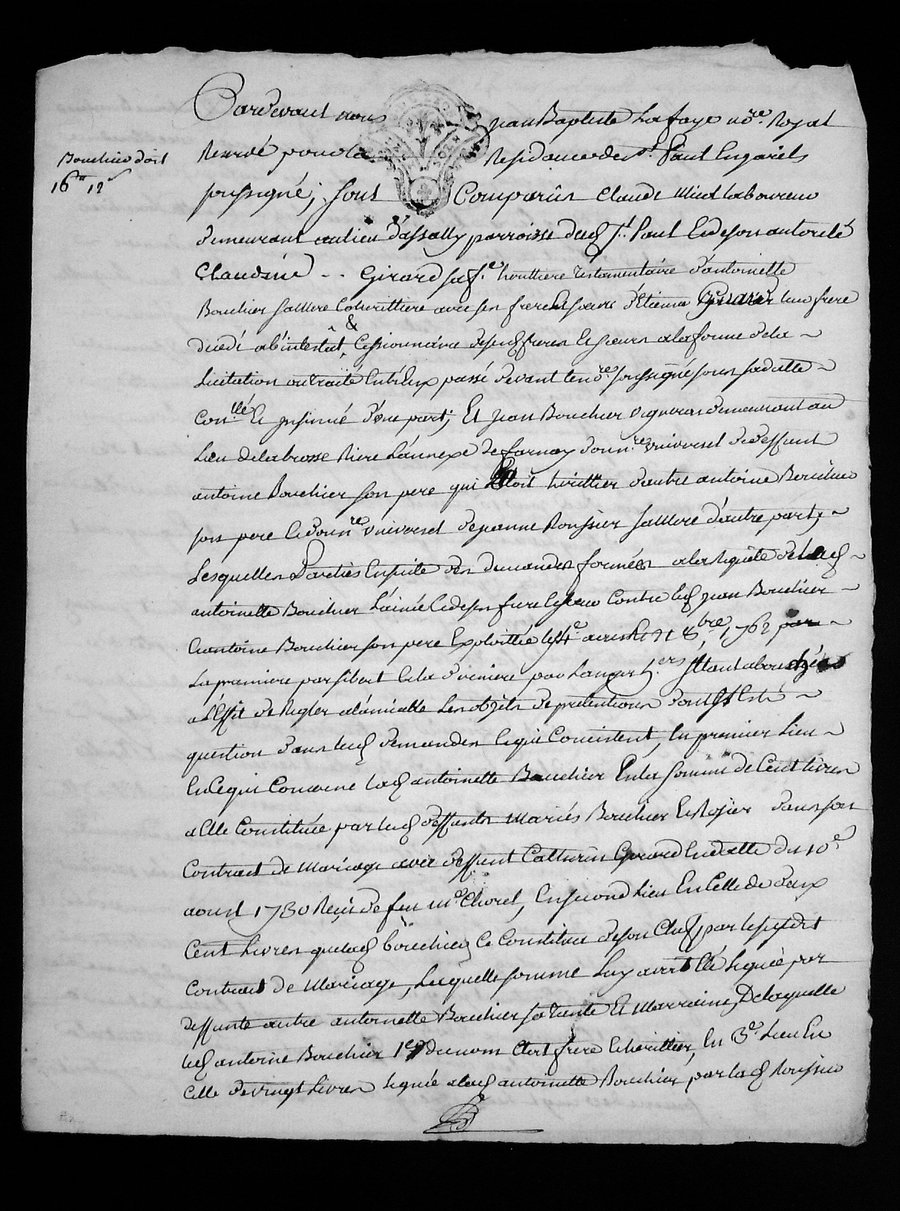 Bouchier doit
16# 12s
Pardevant nous Jean Baptiste Lafaye no.re Royal
Reservé pour la Residance de St. Paul En jarets
soussigné; sont Comparûs Claude Miod laboureur
demeurant au lieu dassally parroisse dud. St. Paul Et de son autorité
Claudine -- Girard sa fe. herittiere testamentaire d'antoinette
Bouchier sa Mere Coherittiere avec ses freres Et soeurs d'Etienne Girard leur frere
decedé ab intestat, & Cessionnaire de ses freres Et soeurs a la forme de la ~
Licitation ou traité Entr'Eux passé devant le no.re soussigné sous sa datte ~
Con.llé Et insinué d'une part; Et Jean Bouchier Vigneron demeurant au
Lieu de la brosse Riere L'annexe de farnay don.re universel de deffunt
antoine Bouchier son pere qui Etoit herittier d'autre antoine Bouchier
son pere Et don.re universel de jeanne Roussier sa Mere d'autre part; ~
Lesquelles Parties Ensuite des demandes formées a la Requéte de lad. ~
antoinette Bouchier L'ainée Et de son frere Contre led. Jean Bouchier ~
Et antoine Bouchier son pere Exploittée les 8.bre 1762 par ~
La premiere par sibert Et la derniere par
a L'Effet de Regler a l'amiable Les objets de pretentions dont Est ~
question dans lesd. demandes Et qui Consistent, En premier Lieu ~
En ce qui Concerne lad. antoinette Bouchier En la somme de Cent livres
a Elle Constituée par lesd. deffunts Mariés Bouchier Et Rosier dans son
Contrait de Mariage avec deffunt Catherin Girard En datte du 10e.
aoust 1730 Reçu de feu Me. Chorel, En second Lieu En Celle de deux
Cent Livres que lad. Bouchier se Constitua de son Chef par le susdit
Contrait de Mariage, Laquelle somme Luy avoit Eté Leguée par
deffunte autre antoinette Bouchier sa tante Et Marraine, De laquelle
led. antoine Bouchier 1er. du nom Etoit frere Et herittier, En 3e. Lieu En
Celle de vingt Livres Leguée a lad. antoinette Bouchier par lad. Roussier